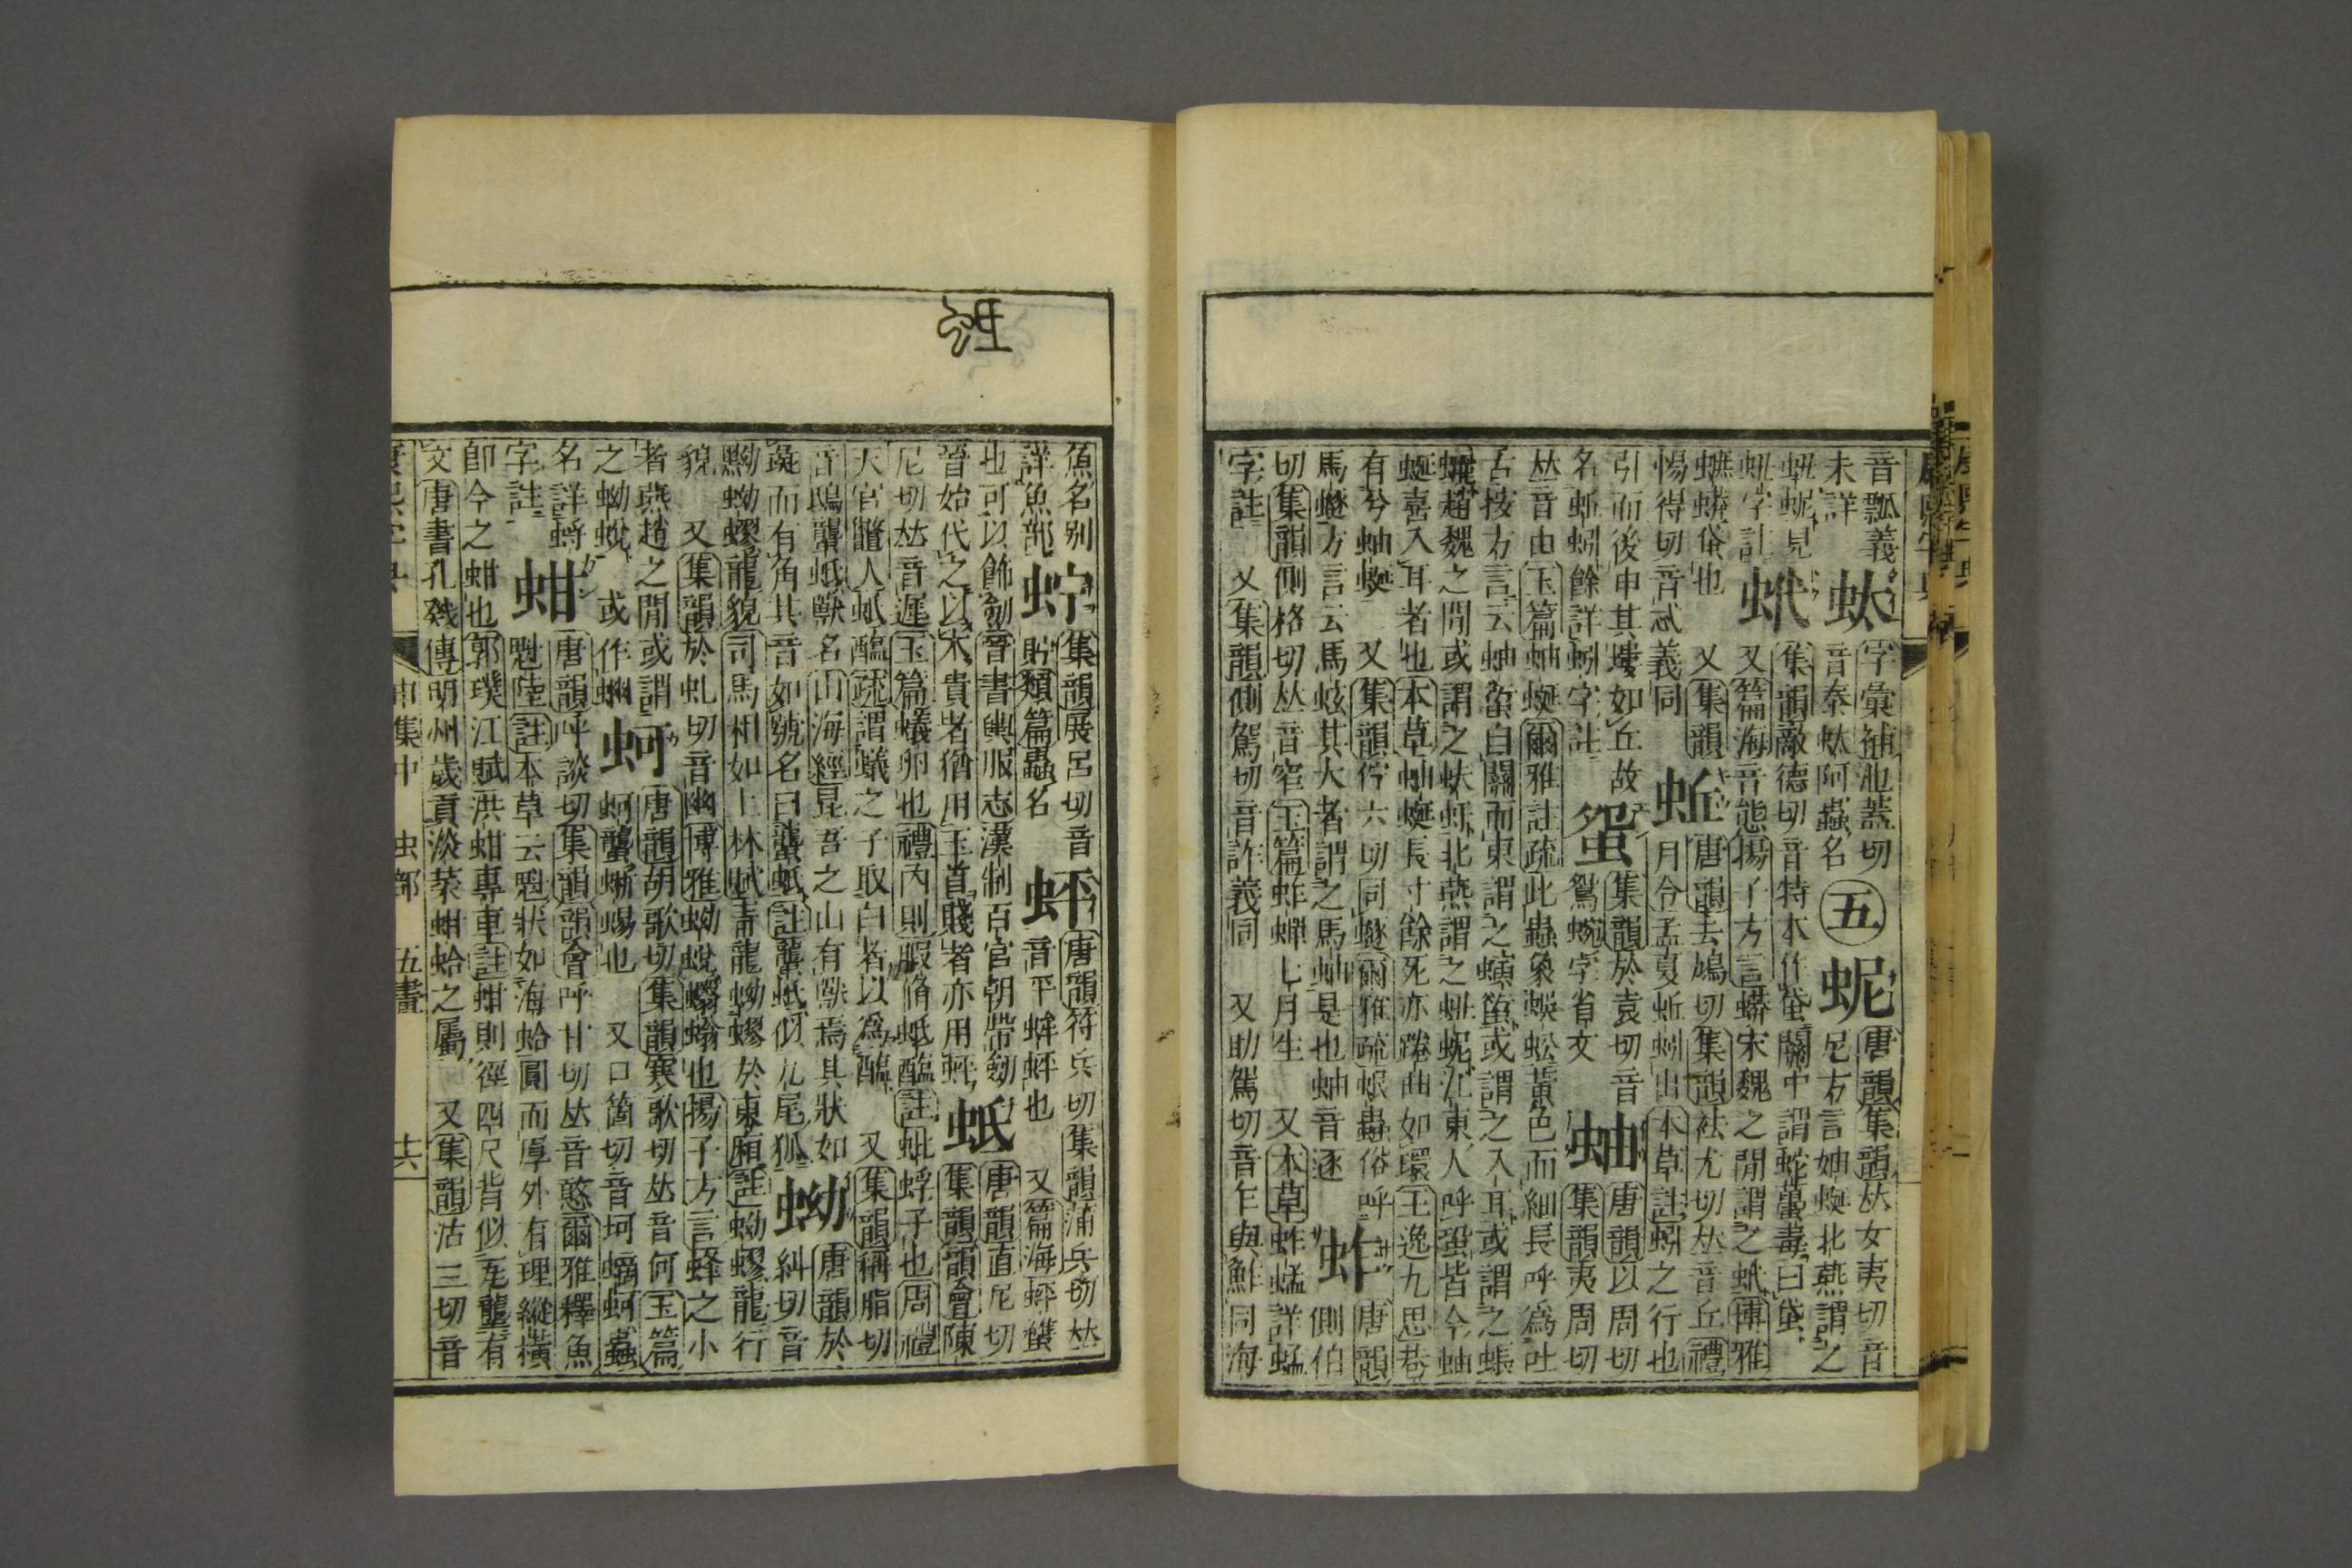 音瓢義
未詳
蚮
字彙補池蓋切
音泰蚮阿蟲名
五
蚭
唐韻集韻𠀤女夷切音
尼方言蚰蜒北燕謂之
蚭見
蚭字註
蚮
集韻敵德切音特本作蟘關中謂蛇蠆毒曰蟘
又篇海音態揚子方言蟒宋魏之閒謂之蚮博雅
蟅蟒蟘也 又集韻
惕得切音忒義同
蚯
唐韻去鳩切集韻袪尤切𠀤音丘禮
月令孟夏蚯蚓出本草註蚓之行也
引而後申其塿如丘故
名蚯蚓餘詳蚓字註
蛋
集韻於袁切音
鴛蜿字省文
蚰
唐韻以周切
集韻夷周切
𠀤音由玉篇蚰蜒爾雅註疏此蟲象蜈蚣黃色而細長呼爲吐
古按方言云蚰蜒自關而東謂之螾䖤或謂之入耳或謂之蜄
䗡趙魏之閒或謂之蚨虶北燕謂之䖡蚭江東人呼蛩皆今蚰
蜒喜入耳者也本草蚰蜒長寸餘死亦踡曲如環王逸九思巷
有兮蚰蜒 又集韻佇六切同䗱爾雅疏蛝蟲俗呼
馬䗱方言云馬蚿其大者謂之馬蚰是也蚰音逐
蚱
唐韻
側伯
切集韻側格切𠀤音窄玉篇蚱蟬七月生 又本草蚱蜢詳蜢
字註 又集韻側駕切音詐義同 又助駕切音乍與鮓同海
蛀
魚名別
詳魚部
𧉞
集韻展呂切音
貯類篇蟲名
蚲
唐韻符兵切集韻蒲兵切𠀤
音平蛑蚲也 又篇海蚲蟥
也可以飾劒晉書輿服志漢制百官朝帶劒
晉始代之以木貴者猶用玉首賤者亦用蚌
蚳
唐韻直尼切
集韻韻會陳
尼切𠀤音遲玉篇蟻卵也禮內則腶脩蚳醢註蚍蜉子也周禮
天官鼈人蚳醢疏謂蟻之子取白者以爲醢 又集韻稱脂切
音鴟蠪蚳獸名山海經昆吾之山有獸焉其狀如
彘而有角其音如號名曰蠪蚳註蠪蚳似九尾狐
蚴
唐韻於
糾切音
黝蚴蟉龍貌司馬相如上林賦靑龍蚴蟉於東廂註蚴蟉龍行
貌 又集韻於虬切音幽博雅蚴蛻蠮螉也揚子方言蜂之小
者燕趙之閒或謂
之蚴蛻 或作蜖
蚵
唐韻胡歌切集韻寒歌切𠀤音何玉篇
蚵蠪蜥蜴也 又口箇切音坷螪蚵蟲
名詳螪
字註
蚶
唐韻呼談切集韻韻會呼甘切𠀤音憨爾雅釋魚
魁陸註本草云魁狀如海蛤圓而厚外有理縱橫
卽今之蚶也郭璞江賦洪蚶專車註蚶則徑四尺背似瓦壟有
文唐書孔戣傳明州歲貢淡菜蚶蛤之屬 又集韻沽三切音
康熙字典 申集中 虫部 五畫 十六